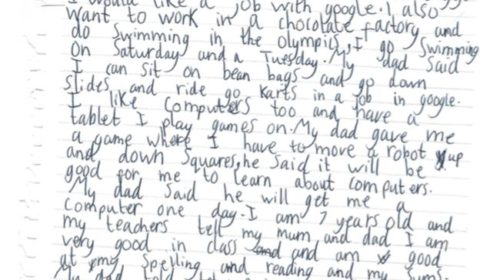 I would like a job with google. I also
want to work in a chocolate factory and
do swimming in the Olympics, I go swimming
on Saturday and a Tuesday. My dad said
I can sit on bean bags and go down
slides and ride go karts in a job in google.
I like computers too and have a
tablet I play games on. My dad gave me
a game where I have to move a robot up
and down squares, he said it will be
good for me to learn about computers.
My dad said he will get me a
computer one day. I am 7 years old and
my teachers tell my mum and dad I am
very good in class and am good
at my spelling and reading and my sums.
My dad told